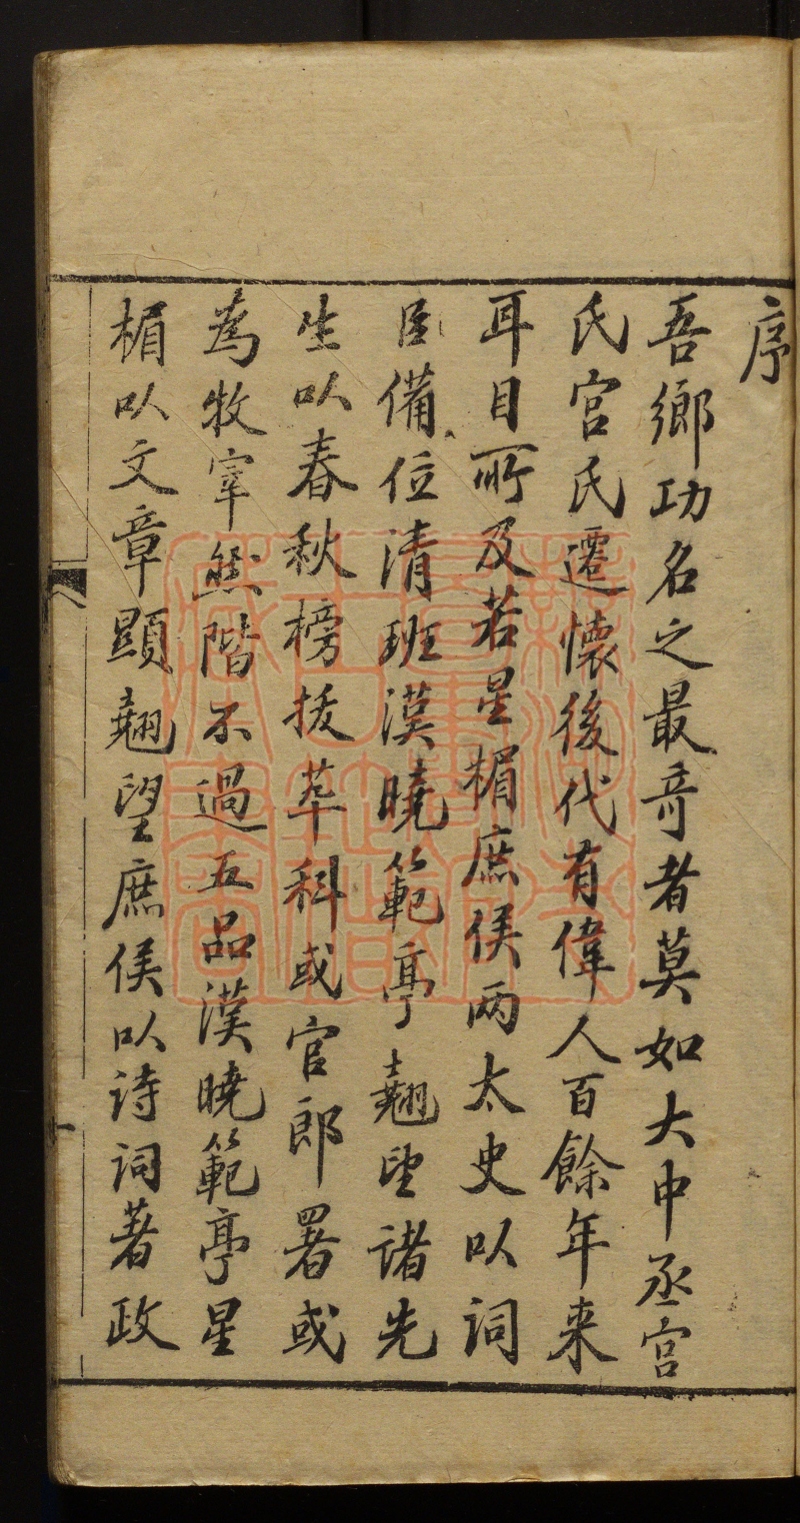 序
吾鄉功名之最奇者莫如大中丞宫
氏宫氏遷懷後代有偉人百餘年来
耳目所及若星楣庶侯两太史以詞
臣備位清班漢曉範亭翹望諸先
生以春秋榜拔萃科或官郎署或
為牧宰然階不過五品漢曉範亭星
楣以文章顯翹望庶侯以诗词著政